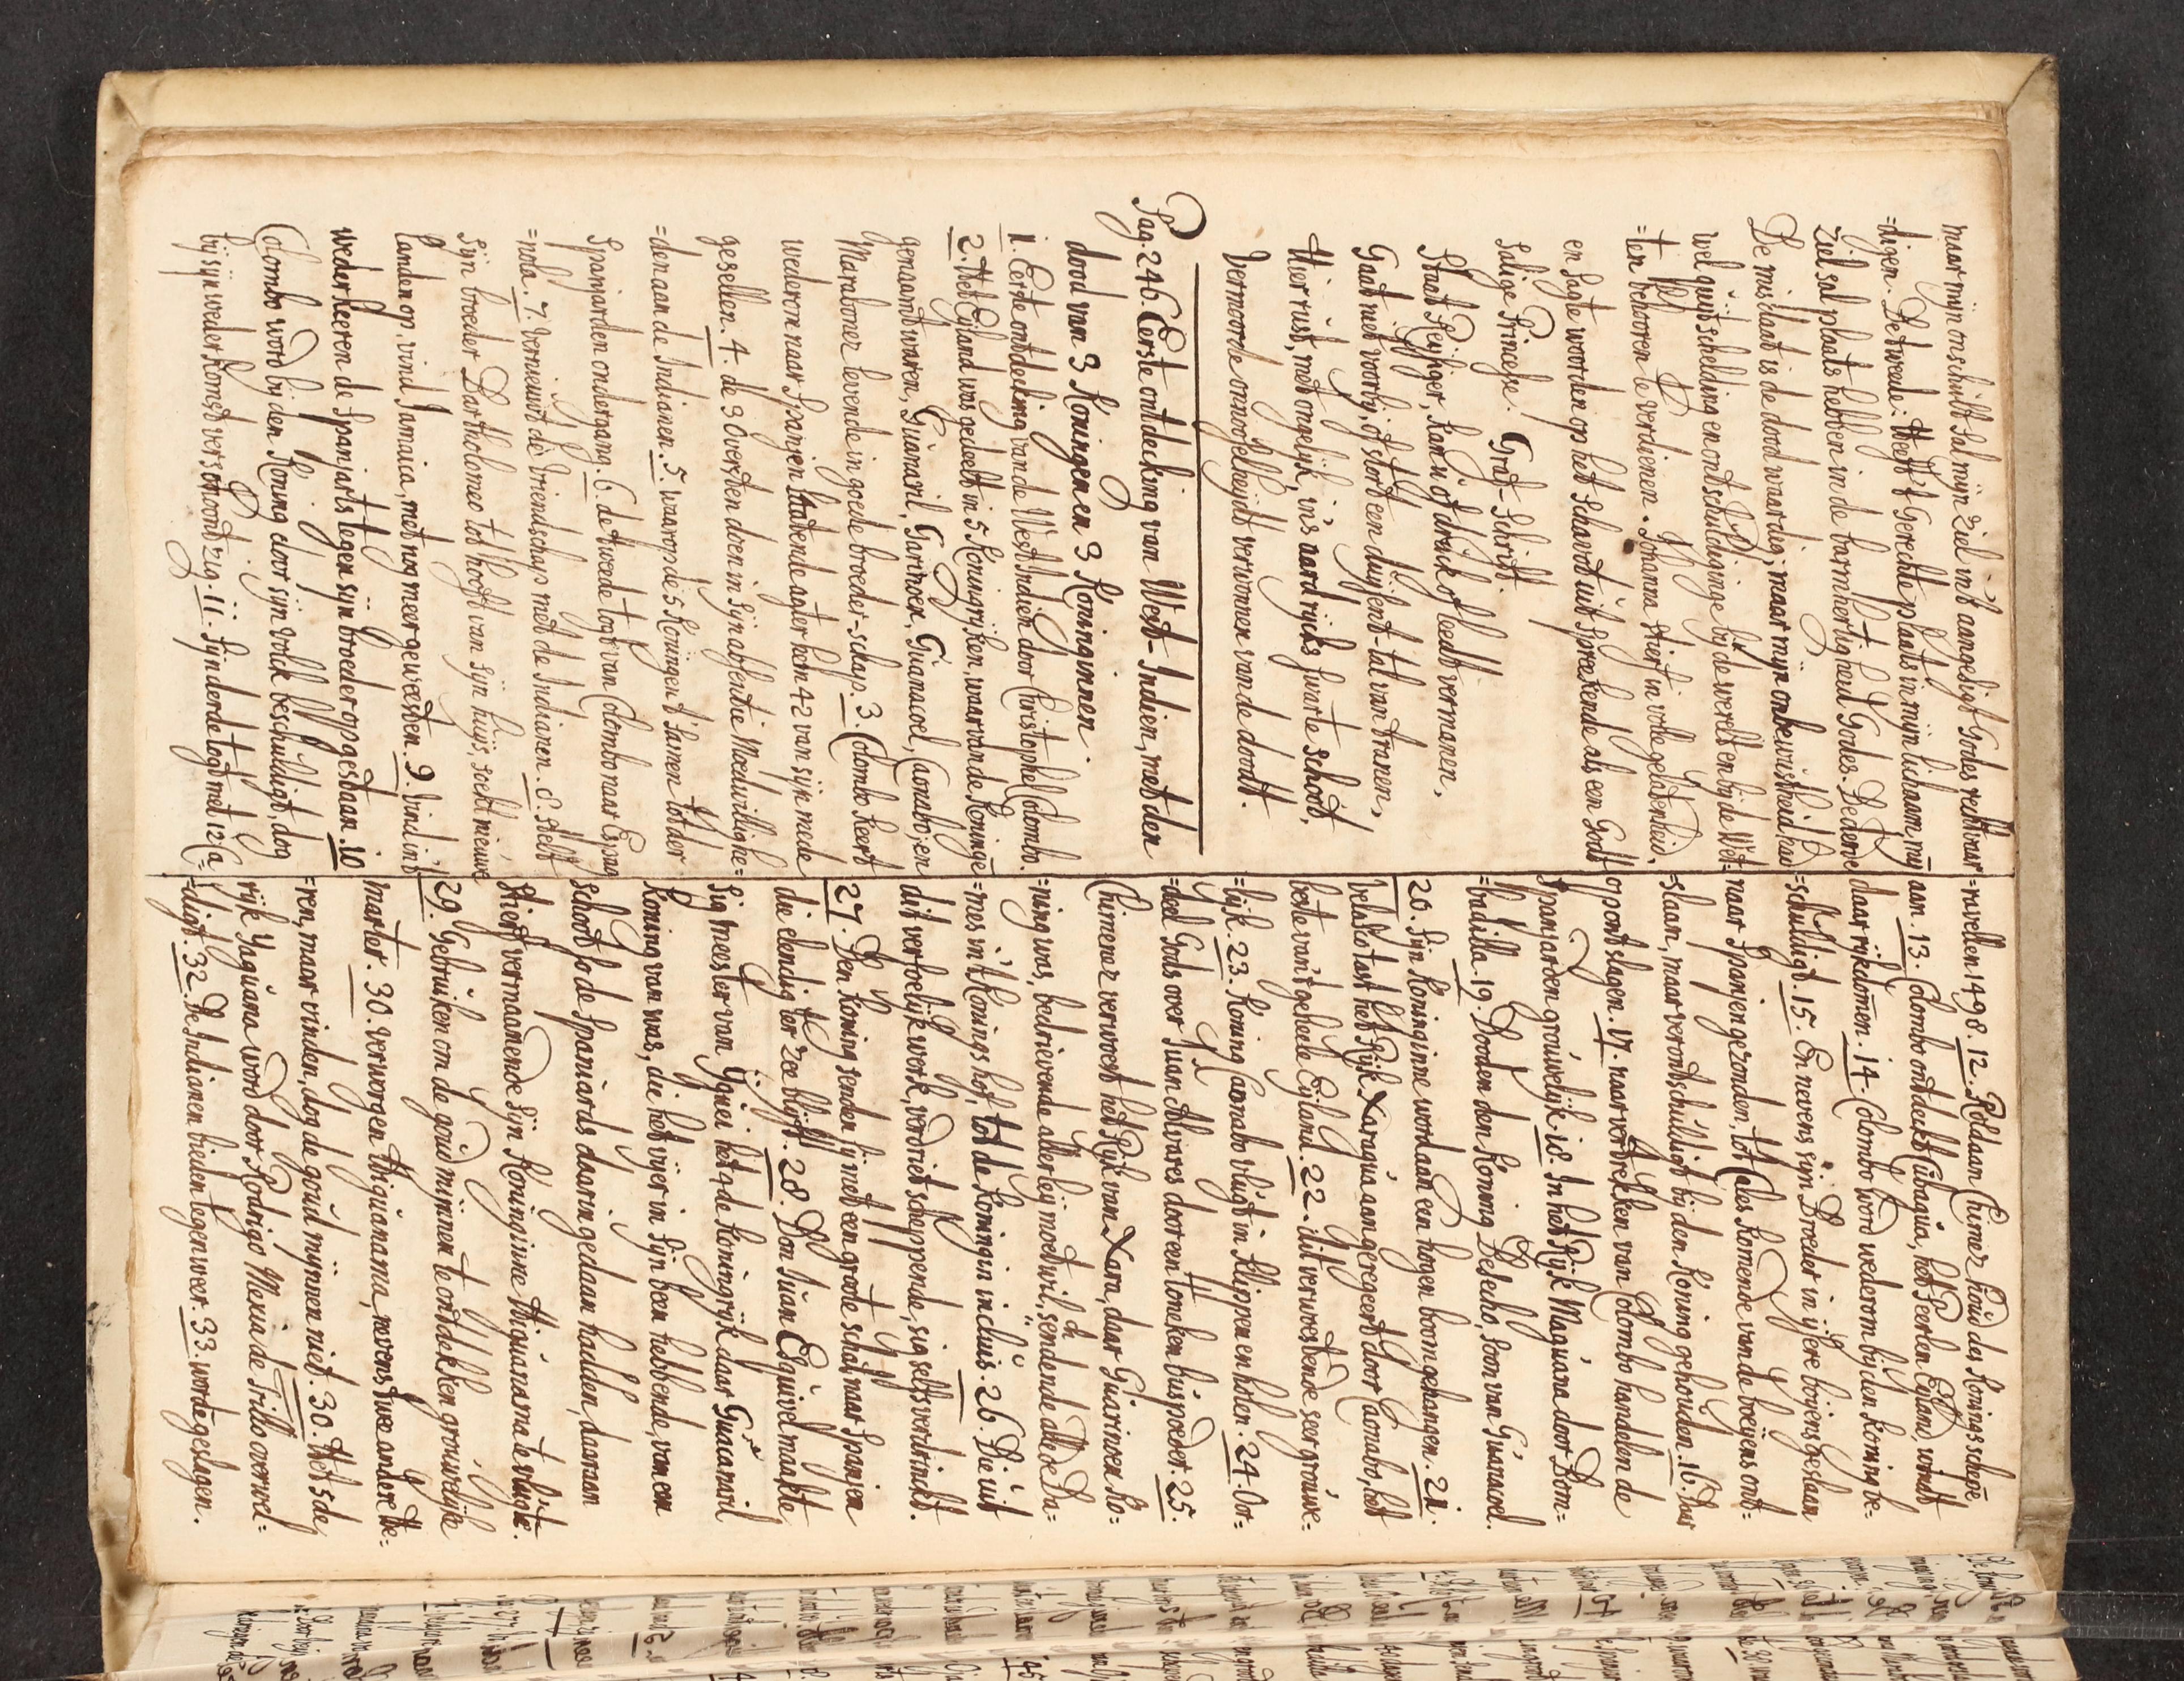 maar mijn onschult sal mijn Ziel in't aangesigt Godes rechtvaar=
=digen. De tweede: Heeft 't Gerechte plaats in mijn lichaam, mij
Ziel sal plaats hebben in de barmhertigheid Godes. De derde
De misdaat is de dood waardig; maar mijn onbewustheid had
wel quijtschelding en ontschuldiginge bij de wereld en bij de Wet=
=ten behooren te verdienen. Johanna stierf in volle gelatenheid,
en sagte woorden op het schavot uitspreekende als een Godt
salige Princesse. Graf-schrift.
Staat Reijsiger, kan u of druk of leedt vermanen,
Gaat niet voorbij, of stort een duijsent-tal van tranen,
Hier rust, met ongelijk, in's aardrijcks swarte schoot,
Vermoorde onnooselheijdt verwonnen van de doodt.
Pag. 246. Eerste ontdecking van West-Indien, met den
dood van 3 Koningen en 3 Koninginnen.
1. Eerste ontdecking van de West Indien door Christophel Colombo.
2. Het Eijland was gedeelt in 5 Koningrijken, waar van de Koninge
genaamt waren, Guamaril, Garihoen, Guanacoel, Caonabo, en
Marabones levende in goede broeder-schap. 3. Colombo keert
wederom naar Spanjen latende agter hem 42 van sijn mede
gesellen. 4. de 3 Oversten doen in sijn absentie Moedwillighe=
=den aan de Indianen. 5. waarop de 5 Koningen t'samen tot der
Spanjarden ondergang. 6. de tweede togt van Colombo naar Espag
=nola. 7. Vernieuwt de vriendschap met de Indianen. 8. Stelt
Sijn broeder Bartholomeo tot hooft van sijn huijs, soekt nieuwe
landen op, vind Jamaica, met nog meer gewesten. 9. Vind in't
wederkeeren de Spanjarts tegen sijn broeder opgestaan. 10
Colombo word bij den Koning door sijn volck beschuldigt, dog
bij sijn wederkomst verschoont zig. 11. Sijn derde togt met 12 Ca=
=ravellen 1498. 12. Roldaan Chimez houd des Konings schepē
aan. 13. Colombo ontdeckt Cubagua, het Peerlen Eyland, vindt
daar rijkdomen. 14. Colombo word wederom bij den Koning be=
=schuldigt. 15. En nevens sijn Broeder in ijsere boijens geslaan
naar Spanjen gezonden, tot Cales komende van de boeijens ont=
=slaan, maar verontschuldigt bij den Koning gehouden. 16. Daar
op ontslagen. 17. naar vertrekken van Colombo handelen de
Spanjarden grouwelijk. 18. In het Rijk Maguana door Bom=
=badilla. 19. Dooden den Koning Besecho, soon van Guanacoel.
20. Sijn Koninginne word aan een hogen boom gehangen. 21.
belast tast het Rijk Xaragua aan geregeert door Caonabo, het
beste van't geheele Eijland. 22. dit verwoestende seer grouwe=
=lijk. 23. Koning Caonabo vlugt in klippen en holen. 24. Oor=
=deel Gods over Juan Alvares door een tonneken buspoeder. 25.
Chimenez verwoest het Rijk van Xara, daar Guarinoex Ko=
=ning was, bedrievende allerleij moetwil, sendende alle de Da=
=mes in 't Konings hof, tot de Koningin incluis. 26. Die uit
dit verfoelijk werk, verdriet scheppende, sig selfs verdrinckt.
27. Den Koning senden sij met een groote schat, naar Spanjen
die elendig ter Zee blijft. 28. Don Juan Esquivel maakte
sig meester van Yguei het 4de koningrijk daar Guacamaril
Koning van was, die het vijer in sijn been hebbende, van een
schoot so de Spaniards daarin gedaan hadden, daaraan
stierf vermaanende sijn Koninginne Hiquanama te vlugte.
29. Gebruijken om de goud mijnnen te ontdekken grouwelijke
marter. 30. verworgen Hiquanama, nevens twee andere He=
=ren, maar vinden, dog de goud mijnnen niet. 30. Het 5de
rijk Yaquana word door Rodrigo Mexia de Trillo overwel=
=digt. 32. De Indianen bieden tegenweer. 33. wordē geslagen.